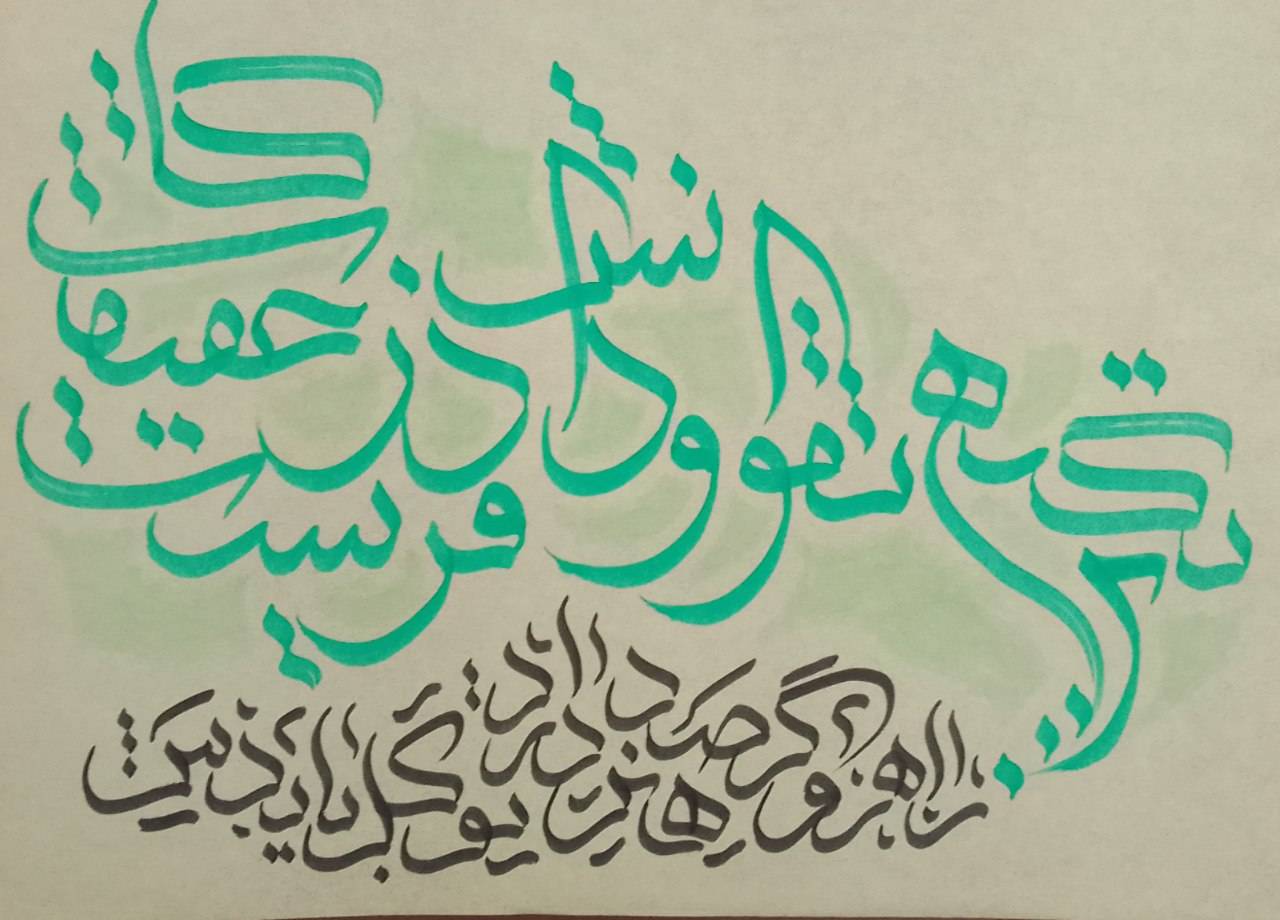 تکیه بر تقوا و دانش در حقیقت کافریست
راهرو گر صد هنر دارد توکل بایدش